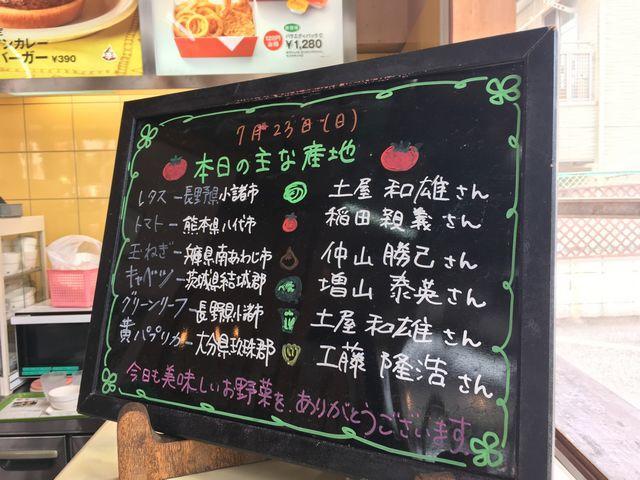 ンカレー
バーガー ¥390
120円
お得
¥1,280
7月23日(日)
本日の主な産地
レタス ー 長野県小諸市 土屋 和雄さん
トマト ー 熊本県八代市 稲田 親義さん
玉ねぎ ー 兵庫県南あわじ市 仲山 勝己さん
キャベツ ー 茨城県結城郡 増山 泰英さん
グリーンリーフ ー 長野県小諸市 土屋 和雄さん
黄パプリカ ー 大分県玖珠郡 工藤 隆浩さん
今日も美味しいお野菜を、ありがとうございます